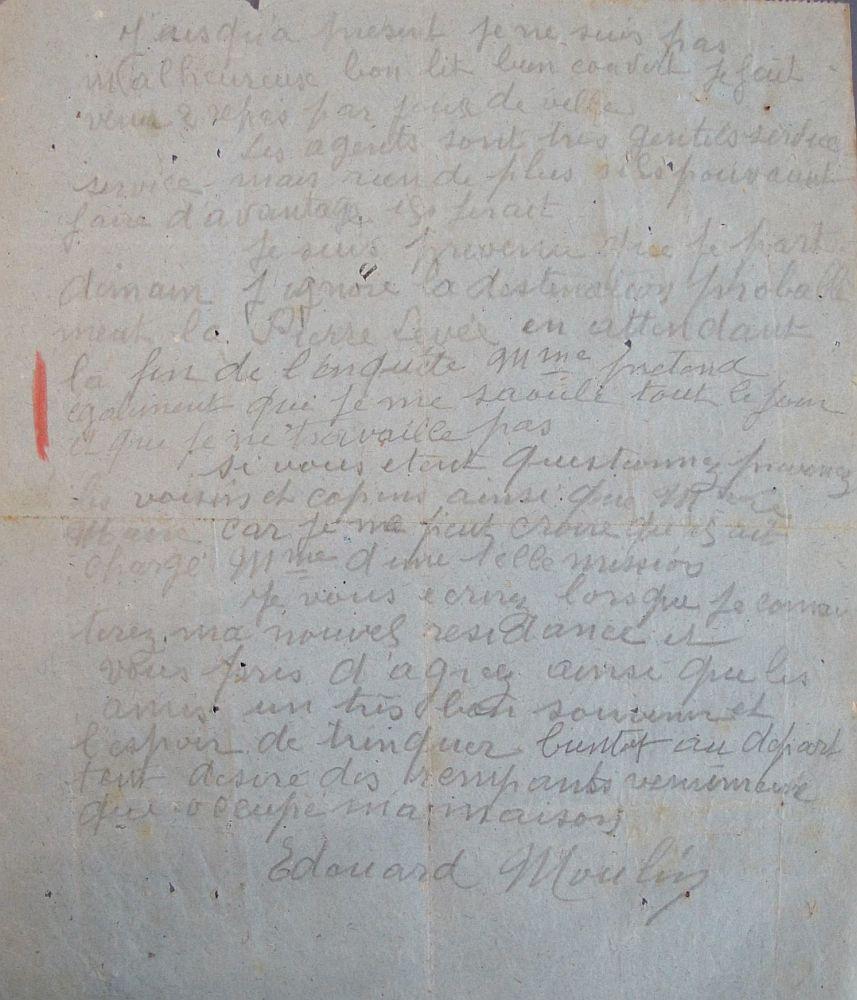 Jusqu'a present je ne suis pas
malheureuse bon lit bien couvert je fait
venir 2 repas par jour de ville
Les agents sont tres gentils service
service mais rien de plus s'ils pouvaient
faire d'avantage ils ferait
Je suis prevenu que je part
demain j'ignore la destination probable
ment la Pierre Levée en attendant
la fin de l'enquête Mme pretend
egalement que je me saoule tout le jour
et que je ne travaille pas
si vous etent questionnez prevenez
les voisins et copins ainsi que Mr le
Maire car je ne peut croire qu'il ait
chargé Mme d'une telle mission
Je vous ecrirez lorsque je connai
terez ma nouvel residance et
vous pris d'agrez ainsi que les
amis un très bon souvenir et
l'espoir de trinquer bientot au depart
tant desire des rempants venimeuse
qui occupe ma maison
Edouard Moulin